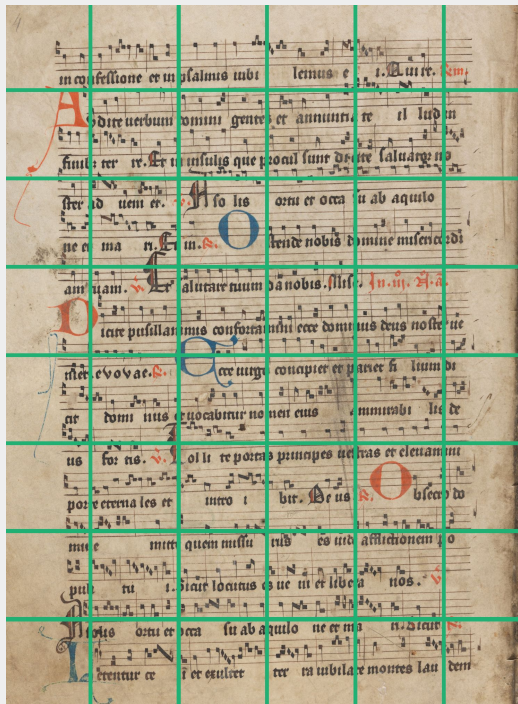 in confessione et in psalmis iubi lemus e i. Qui re.
Audite verbum domini gentes et annuntia te il lud in
finib ter re. Et in insulis que procul sunt dicite saluator no
ster ad ueni et. A so lis ortu et occa su ab aquilo
ne et ma ri. Et in. Ostende nobis domine misericordi
am tuam. Salutare tuum da nobis.
Dicite pusillanimis confortamini ecce dominus deus noster ue
niet. evovae. Ecce uirgo concipiet et pariet fi lium di
cit domi nus et uocabitur nomen eius
us for tis. Tol li te portas principes uestras et eleuamini
porte eterna les et intro i bit. Deus Obsecro do
mine mitte quem missu rus es uide afflictionem po
puli tu i. Sicut locutus es ue ni et libera nos.
ortu et occa su ab aquilo ne et ma ri. Sicut
Letentur ce li et exultet ter ra iubilate montes lau dem